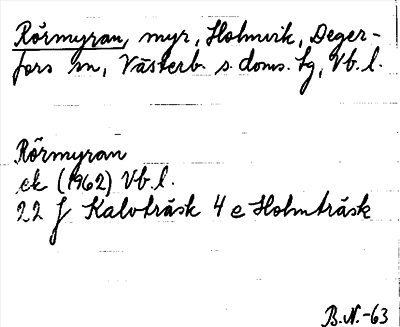 Rörmyran, myr, Holmvik, Deger-
fors sn, Västerb. s. doms. tg, Vb. l.
Rörmyran
ek (1962) Vb. l.
22 J Kalvträsk 4 e Holmträsk
B.N.-63